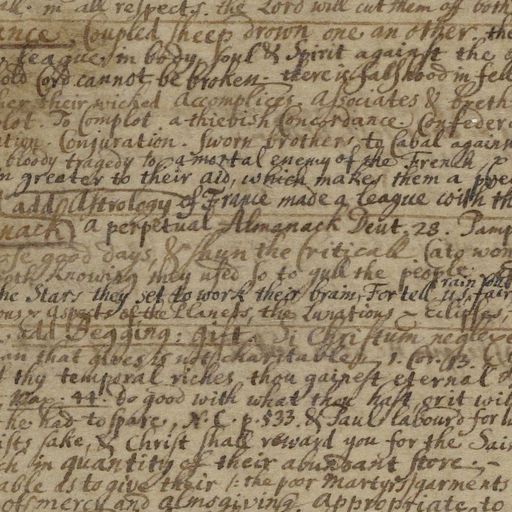 all. in all respects. the Lord will cut them off both
ance. Coupled sheep drown one an other. the
League in body, soul & Spirit against the
old Cord cannot be broken — there is falshood in fell
her their wicked Accomplices. Associates & breth
plot. To Complot a thievish Concordance. Confeder
ation. Conjuration. Sworn brothers to Cabal again
bloody tragedy to a mortal enemy of the French
greater to their aid, which makes them a
add Astrology of France made a league with th
nack) A perpetual Almanack Deut. 28. Pamp
good days, & shun the Criticall. Cato won
both knowing they used so to gull the people. rain
the Stars they set to work their brain, For tell us, fair
ous & Aspects of the Planets, the Lunations — eclipses,
add Begging. gift. Si Christum neglexe
an that gives is not charitable. 1. Cor. 13.
thy temporal riches thou gainest eternal
Max. 44. do good with what thou hast, or it will
he had to spare, N.C. p. 533. & Paul labourd for
ists sake, & Christ shall reward you for the Sain
ch in quantity of their abundant store. —
able as to give their /: the poor Martyrs / garments
of mercy and almsgiving. Appropriate to